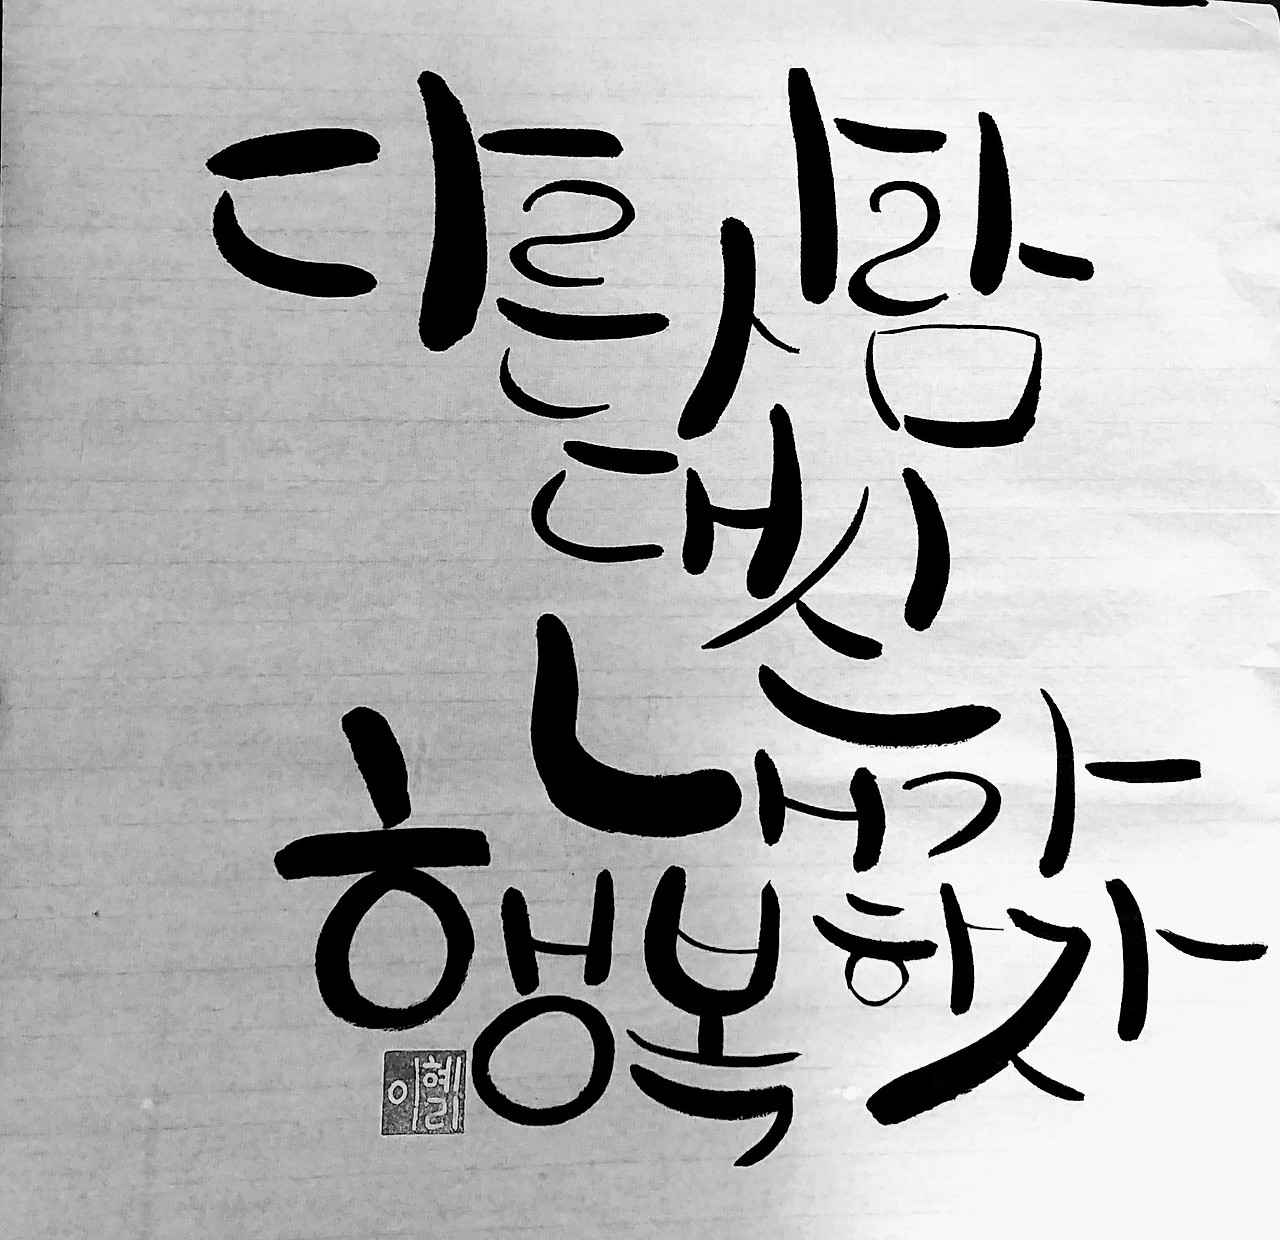 다른 사람
대신
내가
행복하자
이혜리